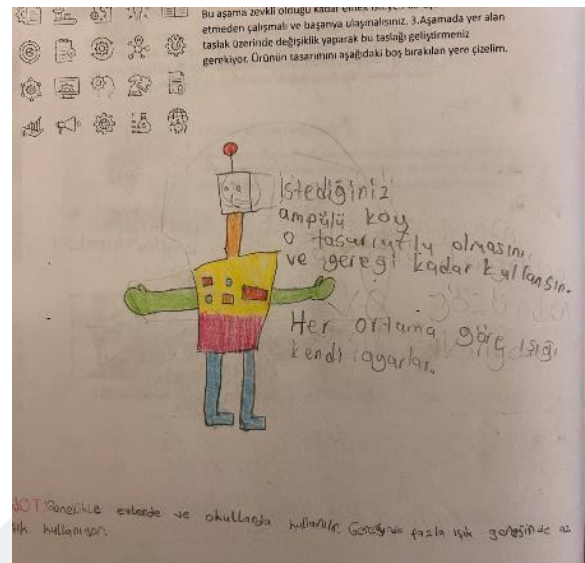 Bu aşama zevkli olduğu kadar
etmeden çalışmalı ve başarıya ulaşmalısınız. 3.Aşamada yer alan
taslak üzerinde değişiklik yaparak bu taslağı geliştirmeniz
gerekiyor. Ürünün tasarımını aşağıdaki boş bırakılan yere çizelim.
istediğiniz
ampülü koy
o tasarruflu olmasını
ve gereği kadar kullansın.
Her ortama göre ışığı
kendi ayarlar.
NOT: Genellikle evlerde ve okullarda kullanılır. Gereğinde fazla ışık gereğinde az
ışık kullanıyor.